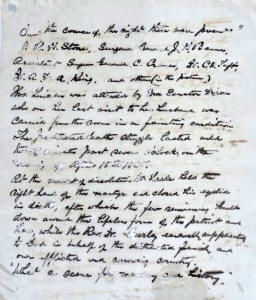 During the course of the night there were present
D. R. K. Stone, Surgeon General J. K. Barnes,
Assistant Surgeon General C. Crane, Dr. C. S. Taft,
Dr. A. F. A. King, and others (in the picture)
Mrs. Lincoln was attended by Mrs. Senator Dixon
who on her last visit to her husband was
carried from the room in a fainting condition.
The protracted death struggle lasted until
minutes past seven o'clock, on the
morning of April 15th 1865.
At the moment of dissolution Dr. Leale held the
right hand of the martyr and closed his eyelid
in death, after which the few remaining knelt
down around the lifeless form of the patriot and
hero, while the Rev. Dr. Gurley earnestly supplicated
to God in behalf of the distracted family and
our afflicted and sorrowing country,
"What a scene for memory and history."